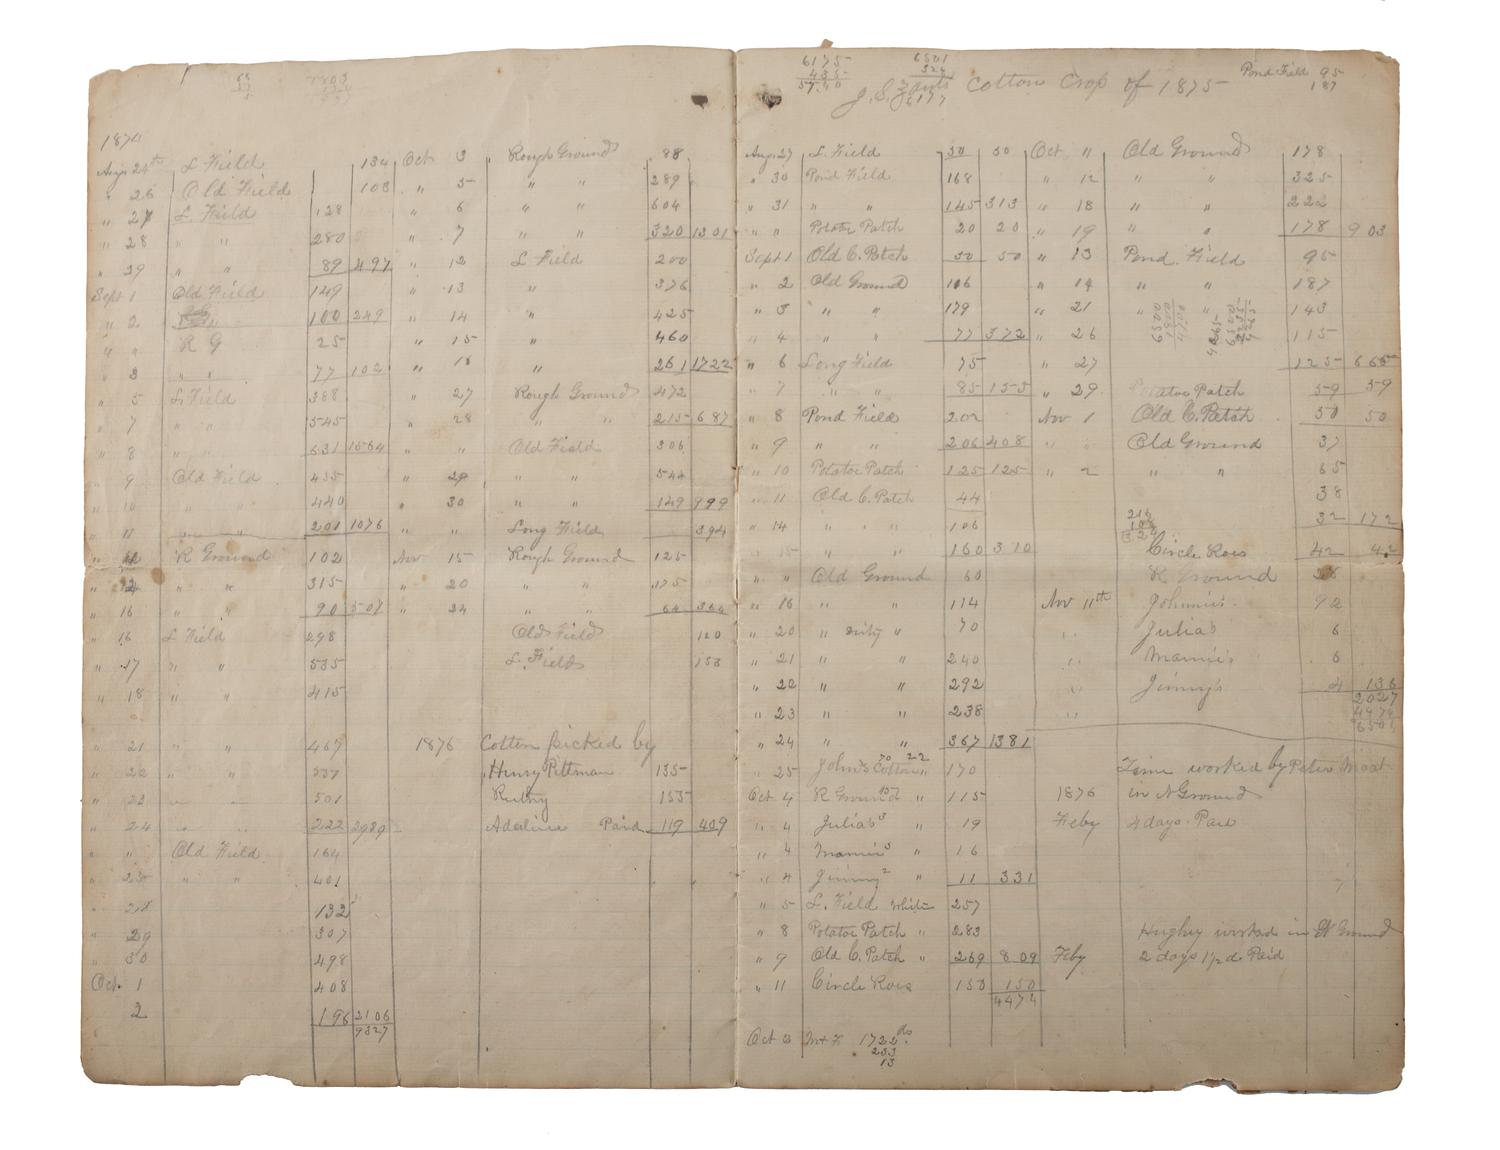 1874
Aug 24th L Field 134
" 26 Old Field 103
" 27 L. Field 128
" 28 " " 280
" 29 " " 89 497
Sept 1 Old Field 149
" 2 " 100 249
" " R G 25
" 3 " " 77 102
" 5 L. Field 388
" 7 " " 545
" 8 " " 631 1564
" 9 Old Field 435
" 10 " " 440
" 11 " " 201 1076
" 12 R Ground 102
" 14 " " 315
" 16 " " 90 507
" 16 L Field 298
" 17 " " 535
" 18 " " 415
" 21 " " 469
" 22 " " 537
" 23 " " 501
" 24 " " 222 2989
" " Old Field 164
" 25 " " 401
" 28 132
" 29 307
" 30 498
Oct. 1 408
2 196 2106
9327
Oct 3 Rough Ground 88
" 5 " " 289
" 6 " " 604
" 7 " " 320 1301
" 12 L Field 200
" 13 " 376
" 14 " 425
" 15 " 460
" 18 " 261 1722
" 27 Rough Ground 472
" 28 " " 215 687
" " Old Field 306
" 29 " " 544
" 30 " " 149 999
" " Long Field 394
Nov 15 Rough Ground 125
" 20 " " 175
" 24 " " 64 364
Old Field 120
L. Field 153
1876 Cotton picked by
Henry Pittman 135
155
Adaline Paid 119 409
6175
435
57.40
6501
324
6177
J. S. Cotton Crop of 1875
Pond Field 95
187
Aug 27 L. Field 50 50
" 30 Pond Field 168
" 31 " " 145 313
" " Potatoe Patch 20 20
Sept 1 Old C. Patch 50 50
" 2 Old Ground 116
" 3 " " 179
" 4 " " 77 372
" 6 Long Field 75
" 7 " " 85 155
" 8 Pond Field 202
" 9 " " 206 408
" 10 Potatoe Patch 125 125
" 11 Old C. Patch 44
" 14 " " " 106
" 15 " " 160 310
" " Old Ground 60
" 16 " " 114
" 20 " " 70
" 21 " " 240
" 22 " " 292
" 23 " " 238
" 24 " " 367 1381
" 25 John's Cotton " 170
Oct 4 R Ground " 115
" 4 Julia's " 19
" 4 Mamie's 16
" 4 Jinny " 11 331
" 5 L. Field White 257
" 8 Potatoe Patch " 283
" 9 Old C. Patch " 269 809
" 11 Circle Rows 150 150
4474
Oct 3 M & F 1722 lbs.
233
13
Oct 11 Old Ground 178
" 12 " " 325
" 18 " " 222
" 19 " " 178 903
" 13 Pond Field 95
" 14 " " 187
" 21 " " 143
" 26 115
" 27 125 665
" 29 Potatoe Patch 59 59
Nov 1 Old C. Patch 50 50
" " Old Ground 37
" 2 " " 65
38
32 172
Circle Rows 42 42
R Ground 28
Nov 11th Johnnie's 92
" Julia's 6
" Mamie's 6
" Jinny's 4 136
2027
4474
6501
Time worked by Peter
1876 in N Ground
Feby 4 days. Paid
Hughey worked in N Ground
Feby 2 days 1/2 d. Paid